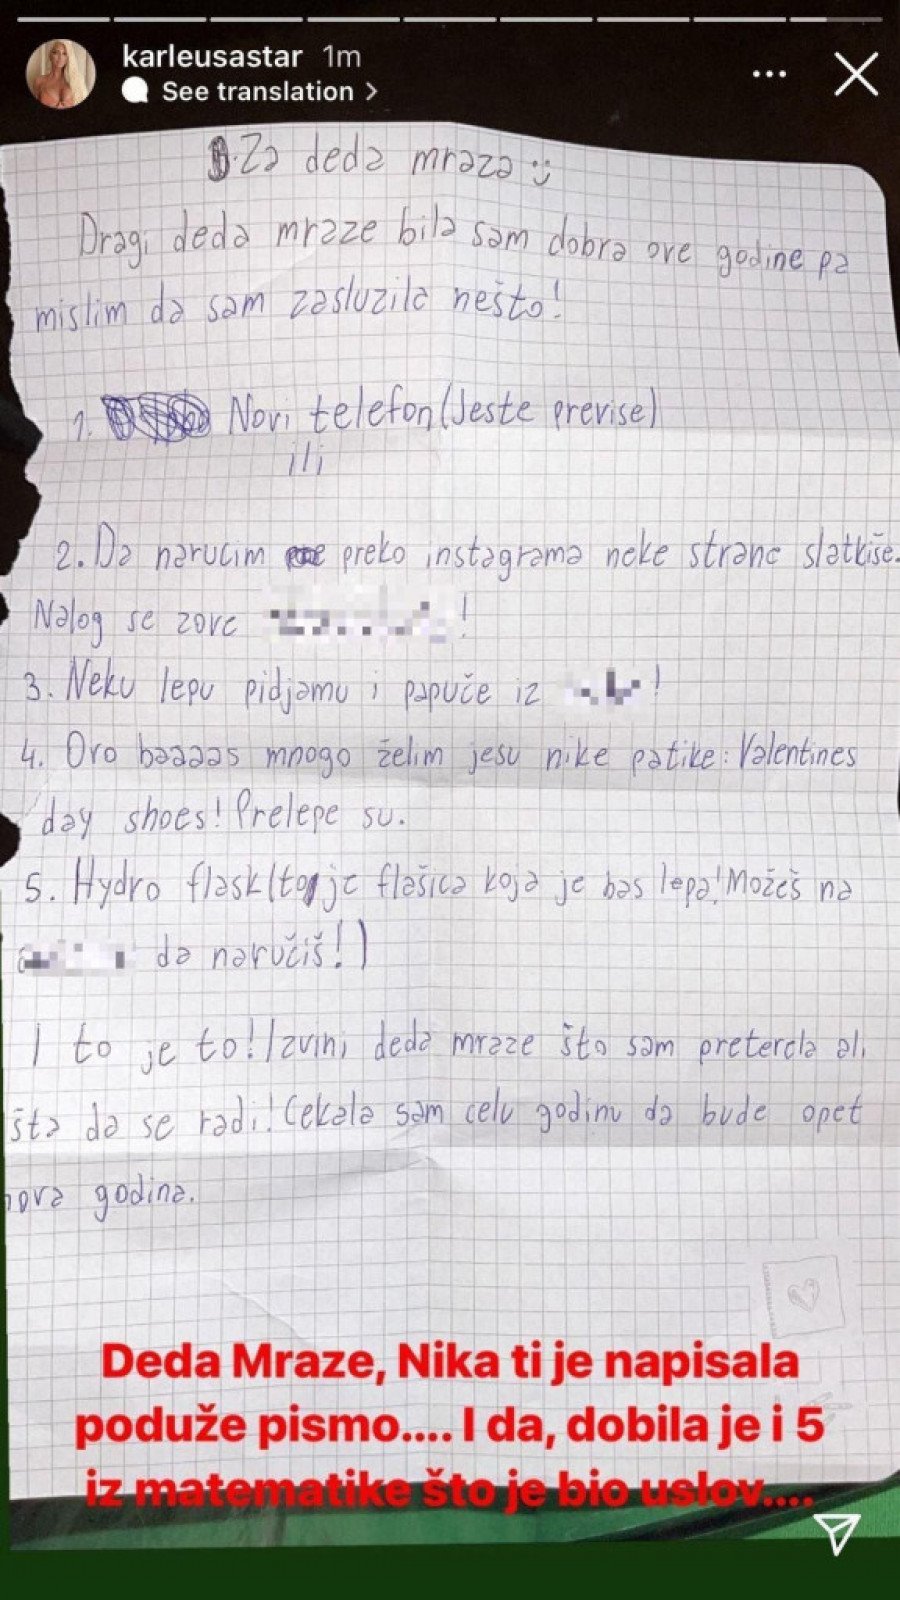 karleusastar 1m
See translation >
Za deda mraza :)
Dragi deda mraze bila sam dobra ove godine pa
mislim da sam zasluzila nešto!
1. Novi telefon (Jeste previse)
ili
2. Da narucim preko instagrama neke strane slatkiše.
Nalog se zove !
3. Neku lepu pidjamu i papuče iz !
4. Ovo baaaas mnogo želim jesu nike patike: Valentines
day shoes! Prelepe su.
5. Hydro flask (to je flašica koja je bas lepa! Možeš na
da naručiš!)
I to je to! Izvini deda mraze što sam preterala ali
šta da se radi! Cekala sam celu godinu da bude opet
nova godina.
Deda Mraze, Nika ti je napisala
poduže pismo.... I da, dobila je i 5
iz matematike što je bio uslov....